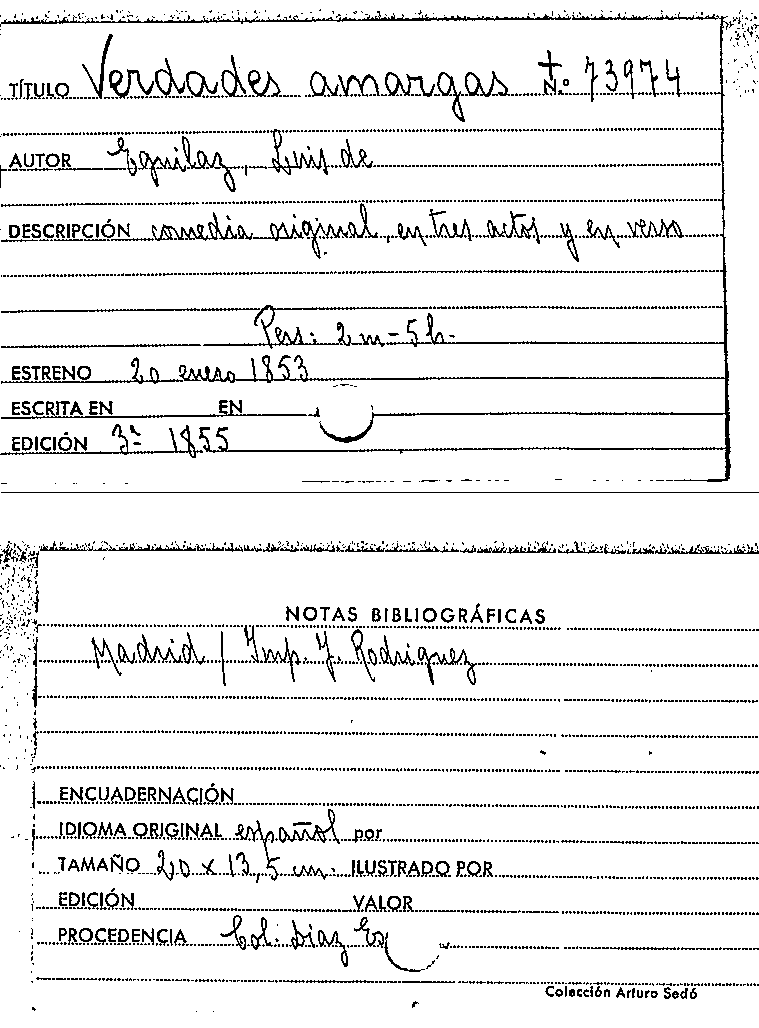 TÍTULO Verdades amargas t N.º 73974
AUTOR Eguilaz, Luis de
DESCRIPCIÓN comedia original, en tres actos y en verso
Pers: 2 m - 5 h.
ESTRENO 20 enero 1853
ESCRITA EN EN
EDICIÓN 3ª 1855
NOTAS BIBLIOGRÁFICAS
Madrid / Imp. J. Rodriguez
ENCUADERNACIÓN
IDIOMA ORIGINAL español por
TAMAÑO 20 x 13,5 cm. ILUSTRADO POR
EDICIÓN VALOR
PROCEDENCIA Col. Diaz Es
Colección Arturo Sedó